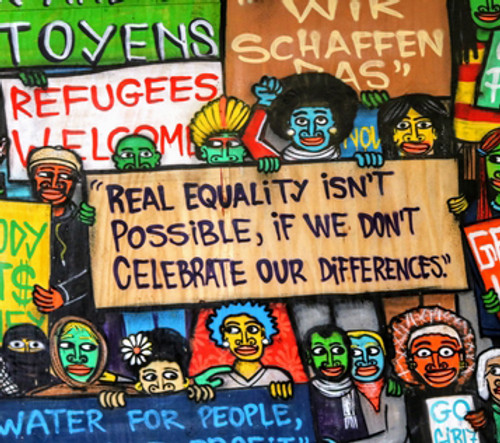 TOYENS
"WIR
SCHAFFEN
DAS"
REFUGEES
WELCOME
"REAL EQUALITY ISN'T
POSSIBLE, IF WE DON'T
CELEBRATE OUR DIFFERENCES."
WATER FOR PEOPLE,
GO